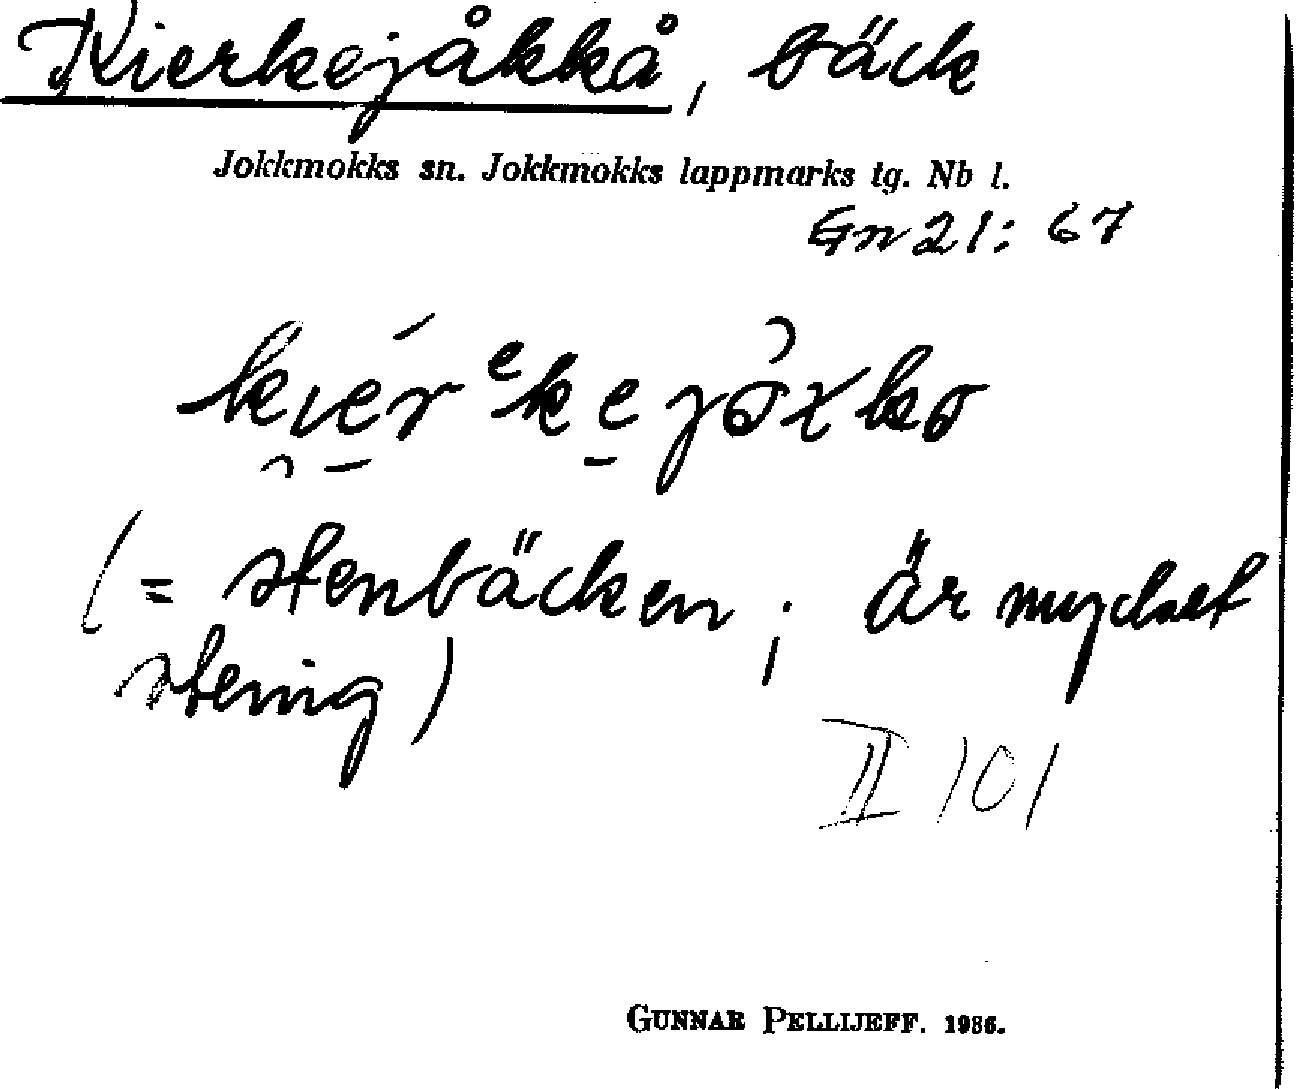 Kierkejåkkå, bäck
Jokkmokks sn. Jokkmokks lappmarks tg. Nb l.
Gn 21: 67
(= stenbäcken; är mycket
stenig)
II 101
GUNNAR PELLIJEFF. 1986.